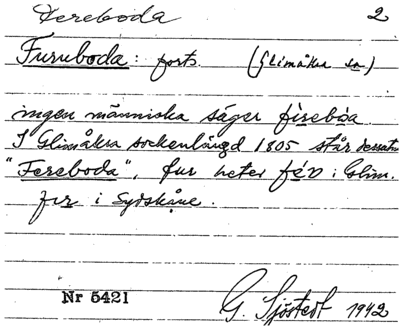 Fereboda 2
Furuboda: forts. (Glimåkra sn)
ingen människa säger fìrebóa
I Glimåkra sockenlängd 1805 står dessutom
"Fereboda", fur heter fér i Glim.
fur i Sydskåne.
Nr 5421 G. Sjöstedt 1942